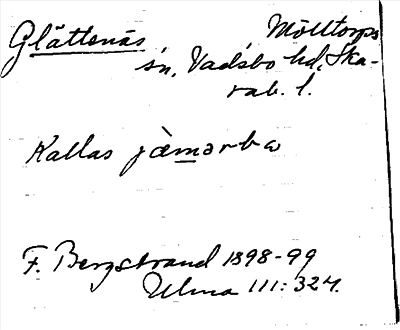 Glättenäs Mölltorps
sn, Vadsbo hd, Ska-
rab. l.
Kallas jämarba
F. Bergstrand 1898-99
Ulma 111:324.